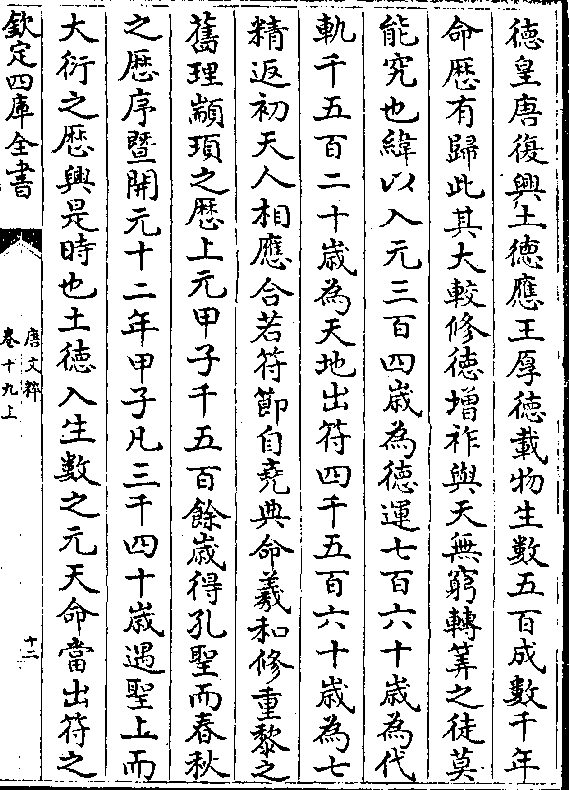 德皇唐復興土德應王厚德載物生數五百成數千年
命歴有歸此其大較修德增祚與天無窮轉筭之徒莫
能究也緯以入元三百四歲為德運七百六十歲為代
軌千五百二十歲為天地出符四千五百六十歲為七
精返初天人相應合若符節自堯典命羲和修重黎之
舊理顓頊之歴上元甲子千五百餘歲得孔聖而春秋
之歴序暨開元十二年甲子凡三千四十歲遇聖上而
大衍之歴興是時也土德入生數之元天命當出符之
欽定四庫全書
唐文粹
卷十九上
十二